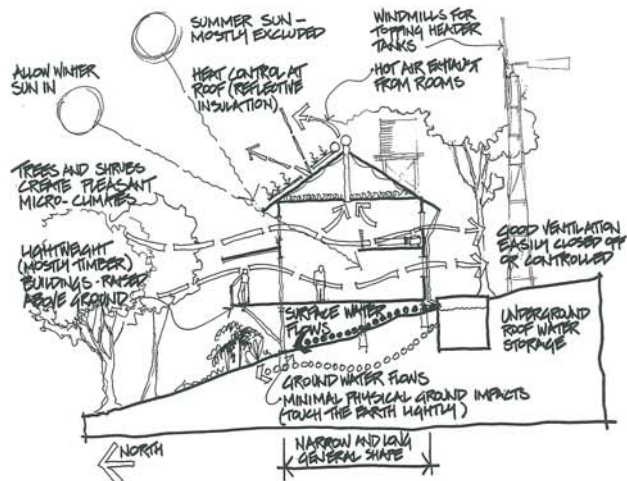 SUMMER SUN -
MOSTLY EXCLUDED
WINDMILLS FOR
TOPPING HEADER
TANKS
HOT AIR EXHAUST
FROM ROOMS
ALLOW WINTER
SUN IN
HEAT CONTROL AT
ROOF (REFLECTIVE
INSULATION)
TREES AND SHRUBS
CREATE PLEASANT
MICRO-CLIMATES
LIGHTWEIGHT
(MOSTLY TIMBER)
BUILDINGS - RAISED
ABOVE GROUND
GOOD VENTILATION
EASILY CLOSED OFF
OR CONTROLLED
SURFACE WATER
FLOWS
UNDERGROUND
ROOF WATER
STORAGE
GROUND WATER FLOWS
MINIMAL PHYSICAL GROUND IMPACTS
(TOUCH THE EARTH LIGHTLY)
NORTH
NARROW AND LONG
GENERAL SHAPE